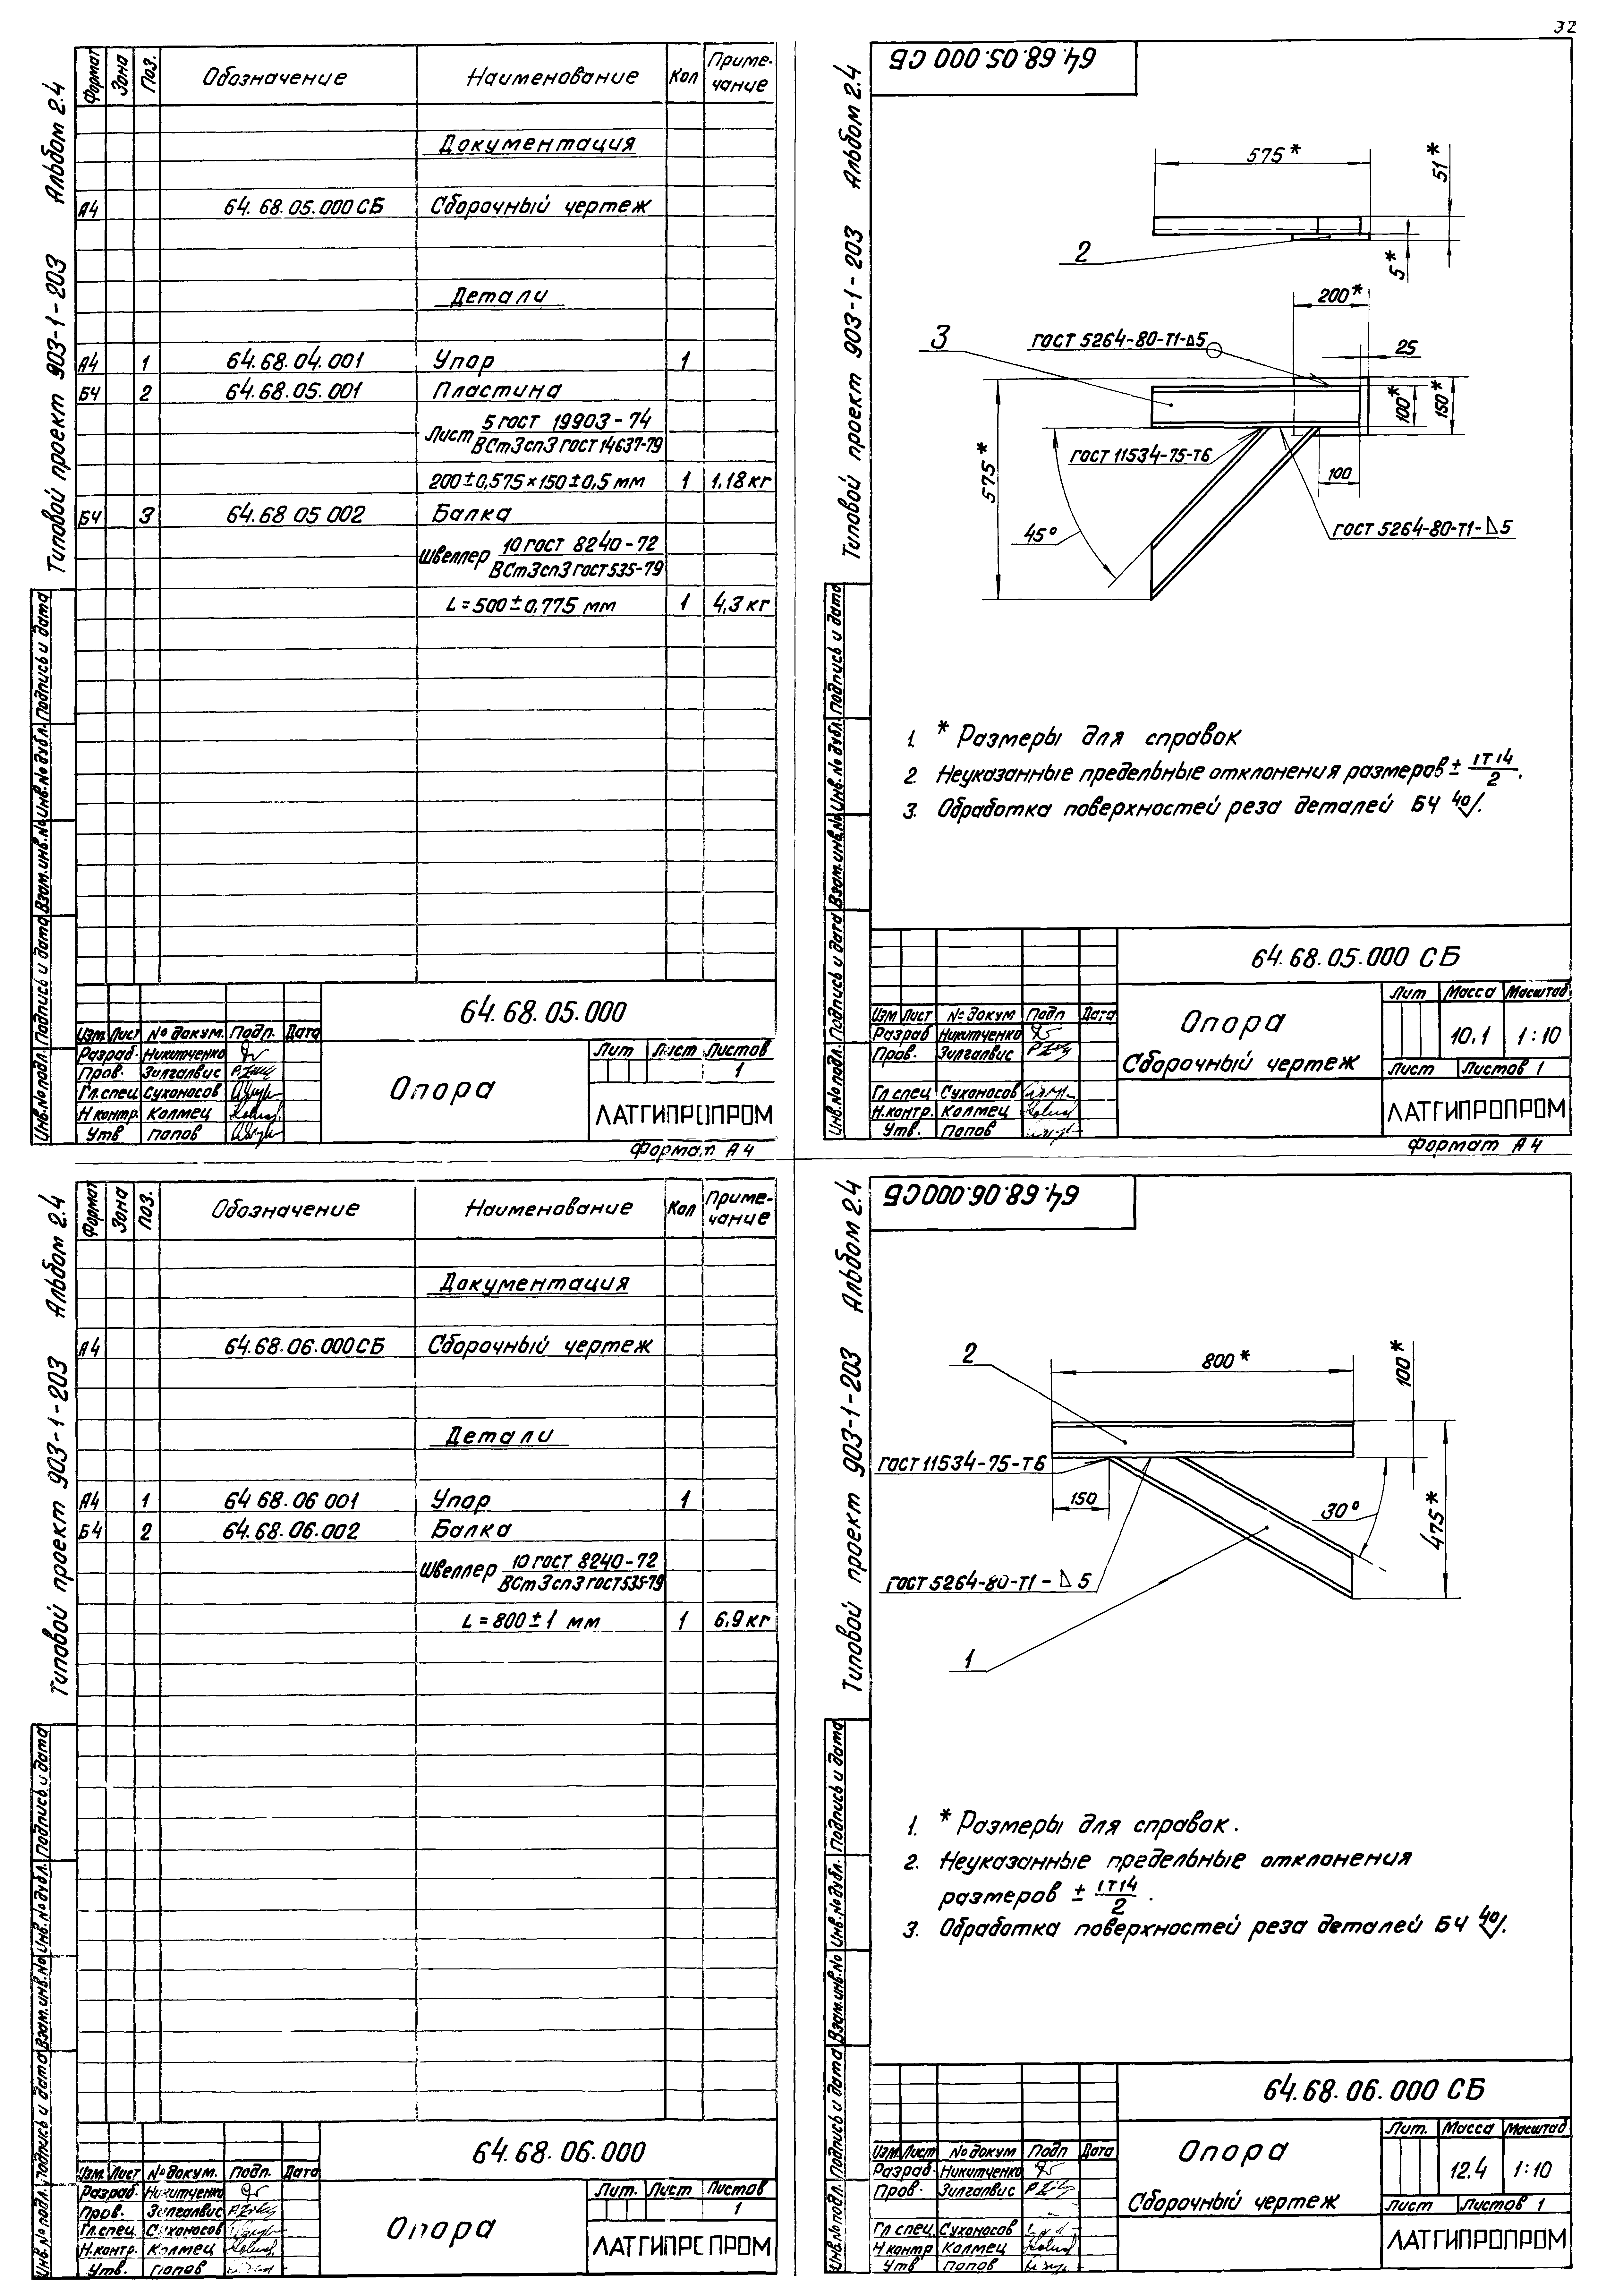 32
Альбом 2.4
Типовой проект 903-1-203
Формат Зона Поз. Обозначение Наименование Кол Приме-
чание
Документация
А4 64.68.05.000СБ Сборочный чертеж
Детали
А4 1 64.68.04.001 Упор 1
БЧ 2 64.68.05.001 Пластина
Лист 5 ГОСТ 19903-74
ВСт3сп3 ГОСТ 14637-79
200±0,575×150±0,5 мм 1 1,18 кг
БЧ 3 64.68 05 002 Балка
Швеллер 10 ГОСТ 8240-72
ВСт3сп3 ГОСТ 535-79
L=500±0,775 мм 1 4,3 кг
Инв.№ подл. Подпись и дата Взам.инв.№ Инв.№ дубл. Подпись и дата
64.68.05.000
Изм. Лист № докум. Подп. Дата
Разраб. Никитченко
Пров. Зилгалвис
Гл.спец Сухоносов
Н контр. Колмец
Утв Попов
Опора
Лит Лист Листов
1
ЛАТГИПРОПРОМ
Формат А4
Альбом 2.4
Типовой проект 903-1-203
64.68.05.000 СБ
575*
51*
2
5*
200*
3
ГОСТ 5264-80-Т1-⊿5
25
100*
150*
575*
ГОСТ 11534-75-Т6
100
45°
ГОСТ 5264-80-Т1-⊿5
1. * Размеры для справок
2. Неуказанные предельные отклонения размеров ± IT14/2.
3. Обработка поверхностей реза деталей БЧ 40/.
Инв.№ подл. Подпись и дата Взам.инв.№ Инв.№ дубл. Подпись и дата
64.68.05.000 СБ
Изм Лист № докум Подп Дата
Разраб Никитченко
Пров. Зилгалвис
Гл спец Сухоносов
Н.контр. Колмец
Утв. Попов
Опора
Сборочный чертеж
Лит Масса Масштаб
10,1 1:10
Лист Листов 1
ЛАТГИПРОПРОМ
Формат А4
Альбом 2.4
Типовой проект 903-1-203
Формат Зона Поз. Обозначение Наименование Кол Приме-
чание
Документация
А4 64.68.06.000СБ Сборочный чертеж
Детали
А4 1 64 68.06 001 Упор 1
БЧ 2 64.68.06.002 Балка
Швеллер 10 ГОСТ 8240-72
ВСт3сп3 ГОСТ 535-79
L=800±1 мм 1 6,9 кг
Инв.№ подл. Подпись и дата Взам.инв.№ Инв.№ дубл. Подпись и дата
64.68.06.000
Изм. Лист № докум. Подп. Дата
Разраб. Никитченко
Пров. Зилгалвис
Гл.спец. Сухоносов
Н.контр. Колмец
Утв. Попов
Опора
Лит. Лист Листов
1
ЛАТГИПРОПРОМ
Альбом 2.4
Типовой проект 903-1-203
64.68.06.000СБ
2
800*
100*
ГОСТ 11534-75-Т6
150
30°
475*
ГОСТ 5264-80-Т1-⊿5
1
1. * Размеры для справок.
2. Неуказанные предельные отклонения
размеров ± IT14/2.
3. Обработка поверхностей реза деталей БЧ 40/.
Инв.№ подл. Подпись и дата Взам.инв.№ Инв.№ дубл. Подпись и дата
64.68.06.000 СБ
Изм. Лист № докум Подп Дата
Разраб. Никитченко
Пров. Зилгалвис
Гл спец. Сухоносов
Н контр Колмец
Утв Попов
Опора
Сборочный чертеж
Лит. Масса Масштаб
12,4 1:10
Лист Листов 1
ЛАТГИПРОПРОМ